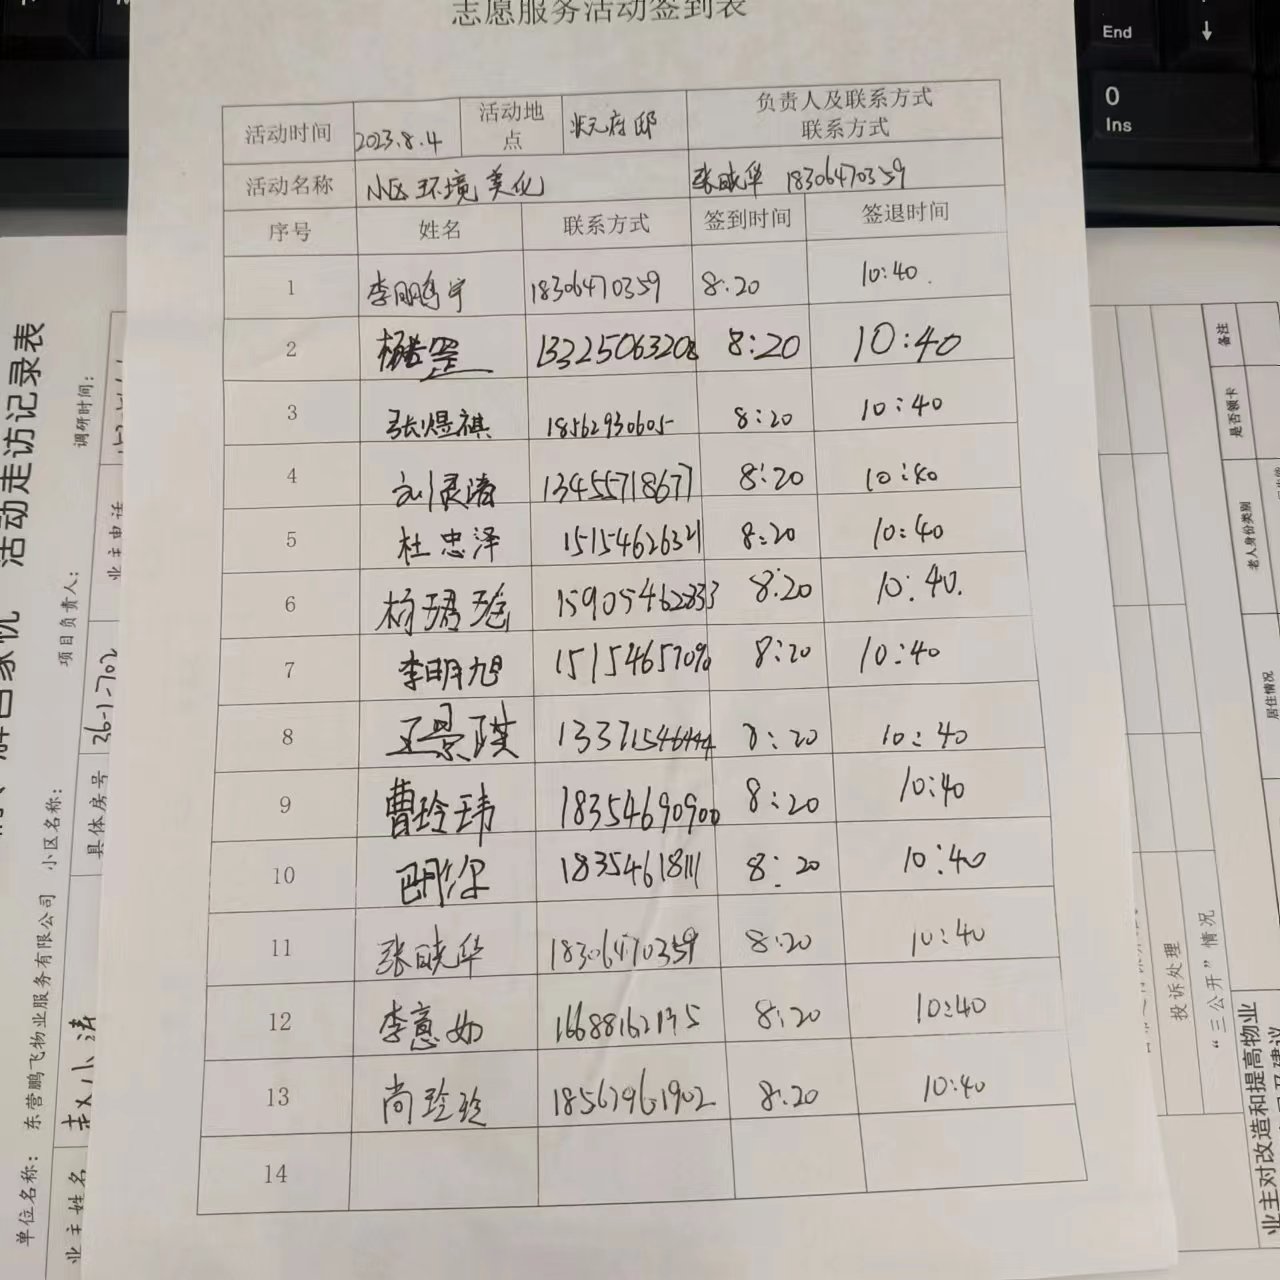 志愿服务活动签到表
活动时间 2023.8.4 活动地点 状元府邸 负责人及联系方式
联系方式
活动名称 小区环境美化 张晓华 18306470359
序号 姓名 联系方式 签到时间 签退时间
1 李鹏宇 18306470359 8:20 10:40.
2 13225063208 8:20 10:40
3 张煜祺 18562930605 8:20 10:40
4 刘灵涛 13455718677 8:20 10:40
5 杜忠泽 15154626321 8:20 10:40
6 杨珺瑶 15905462833 8:20 10:40.
7 李明旭 15154657096 8:20 10:40
8 王景琪 13371546444 8:20 10:40
9 曹玲玮 18354690900 8:20 10:40
10 18354618111 8:20 10:40
11 张晓华 18306470359 8:20 10:40
12 李意如 8:20 10:40
13 尚玲玲 18562961902 8:20 10:40
14
活动走访记录表
调研时间:
项目负责人:
业主电话
26-1-702
具体房号
小区名称:
单位名称: 东营鹏飞物业服务有限公司
业主姓名 赵小涛
备注
是否领卡
老人身份类别
居住情况
投诉处理
“三公开”情况
业主对改造和提高物业
End
↓
0
Ins